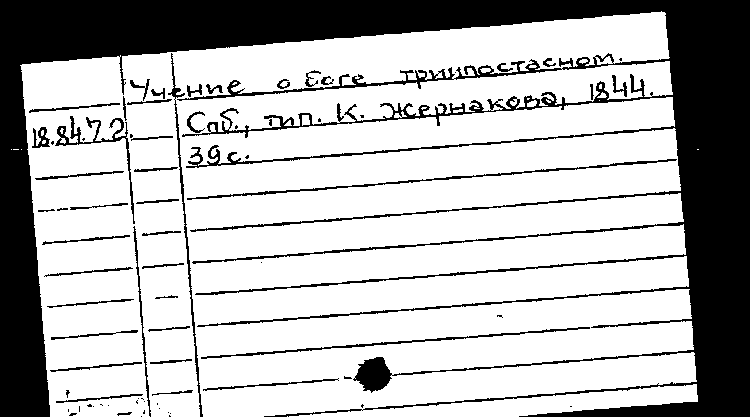 Учение о боге триипостасном.
18.84.7.2. Спб., тип. К. Жернакова, 1844.
39 с.